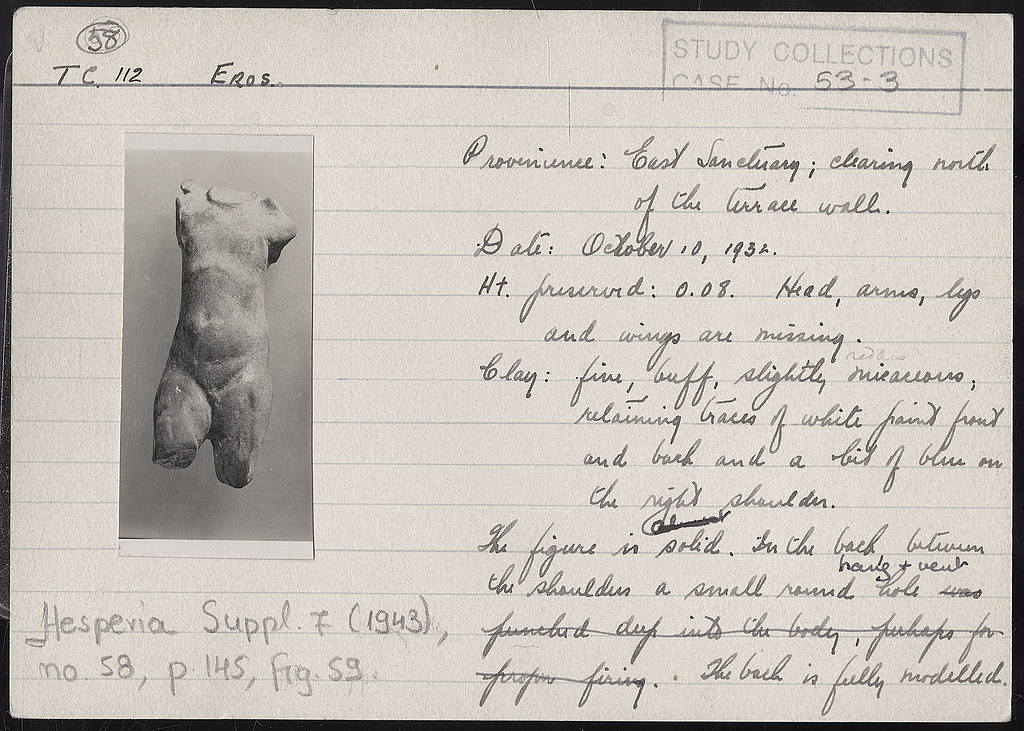 58
TC. 112 EROS.
STUDY COLLECTIONS
CASE NO. 53-3
Provenience: East Sanctuary; clearing north
of the terrace wall.
Date: October 10, 1932.
Ht. preserved: 0.08. Head, arms, legs
and wings are missing.
Clay: fine, buff, slightly micaceous;
retaining traces of white paint front
and back and a bit of blue on
the right shoulder.
The figure is solid. In the back between
hang + vent
the shoulders a small round hole was
punched deep into the body, perhaps for
proper firing. . The back is fully modelled.
Hesperia Suppl. 7 (1943),
no. 58, p. 145, fig. 59.